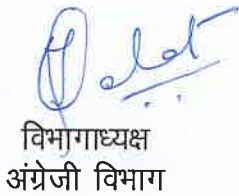 विभागाध्यक्ष
अंग्रेजी विभाग